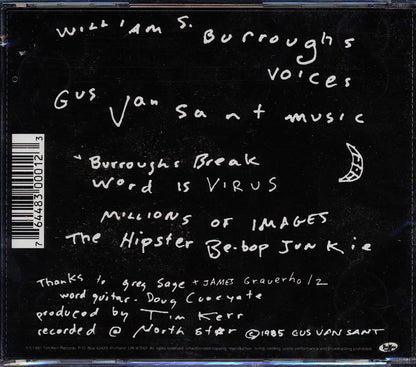 William S. Burroughs
voices
Gus Van Sant music
Burroughs Break
Word is VIRUS
MILLIONS OF IMAGES
The Hipster Be-bop Junkie
Thanks to greg Sage + JAMES Grauerholz
word guitar - Doug
produced by Tim Kerr
recorded @ North Star ©1985 GUS VAN SANT
7 64483 00012 3